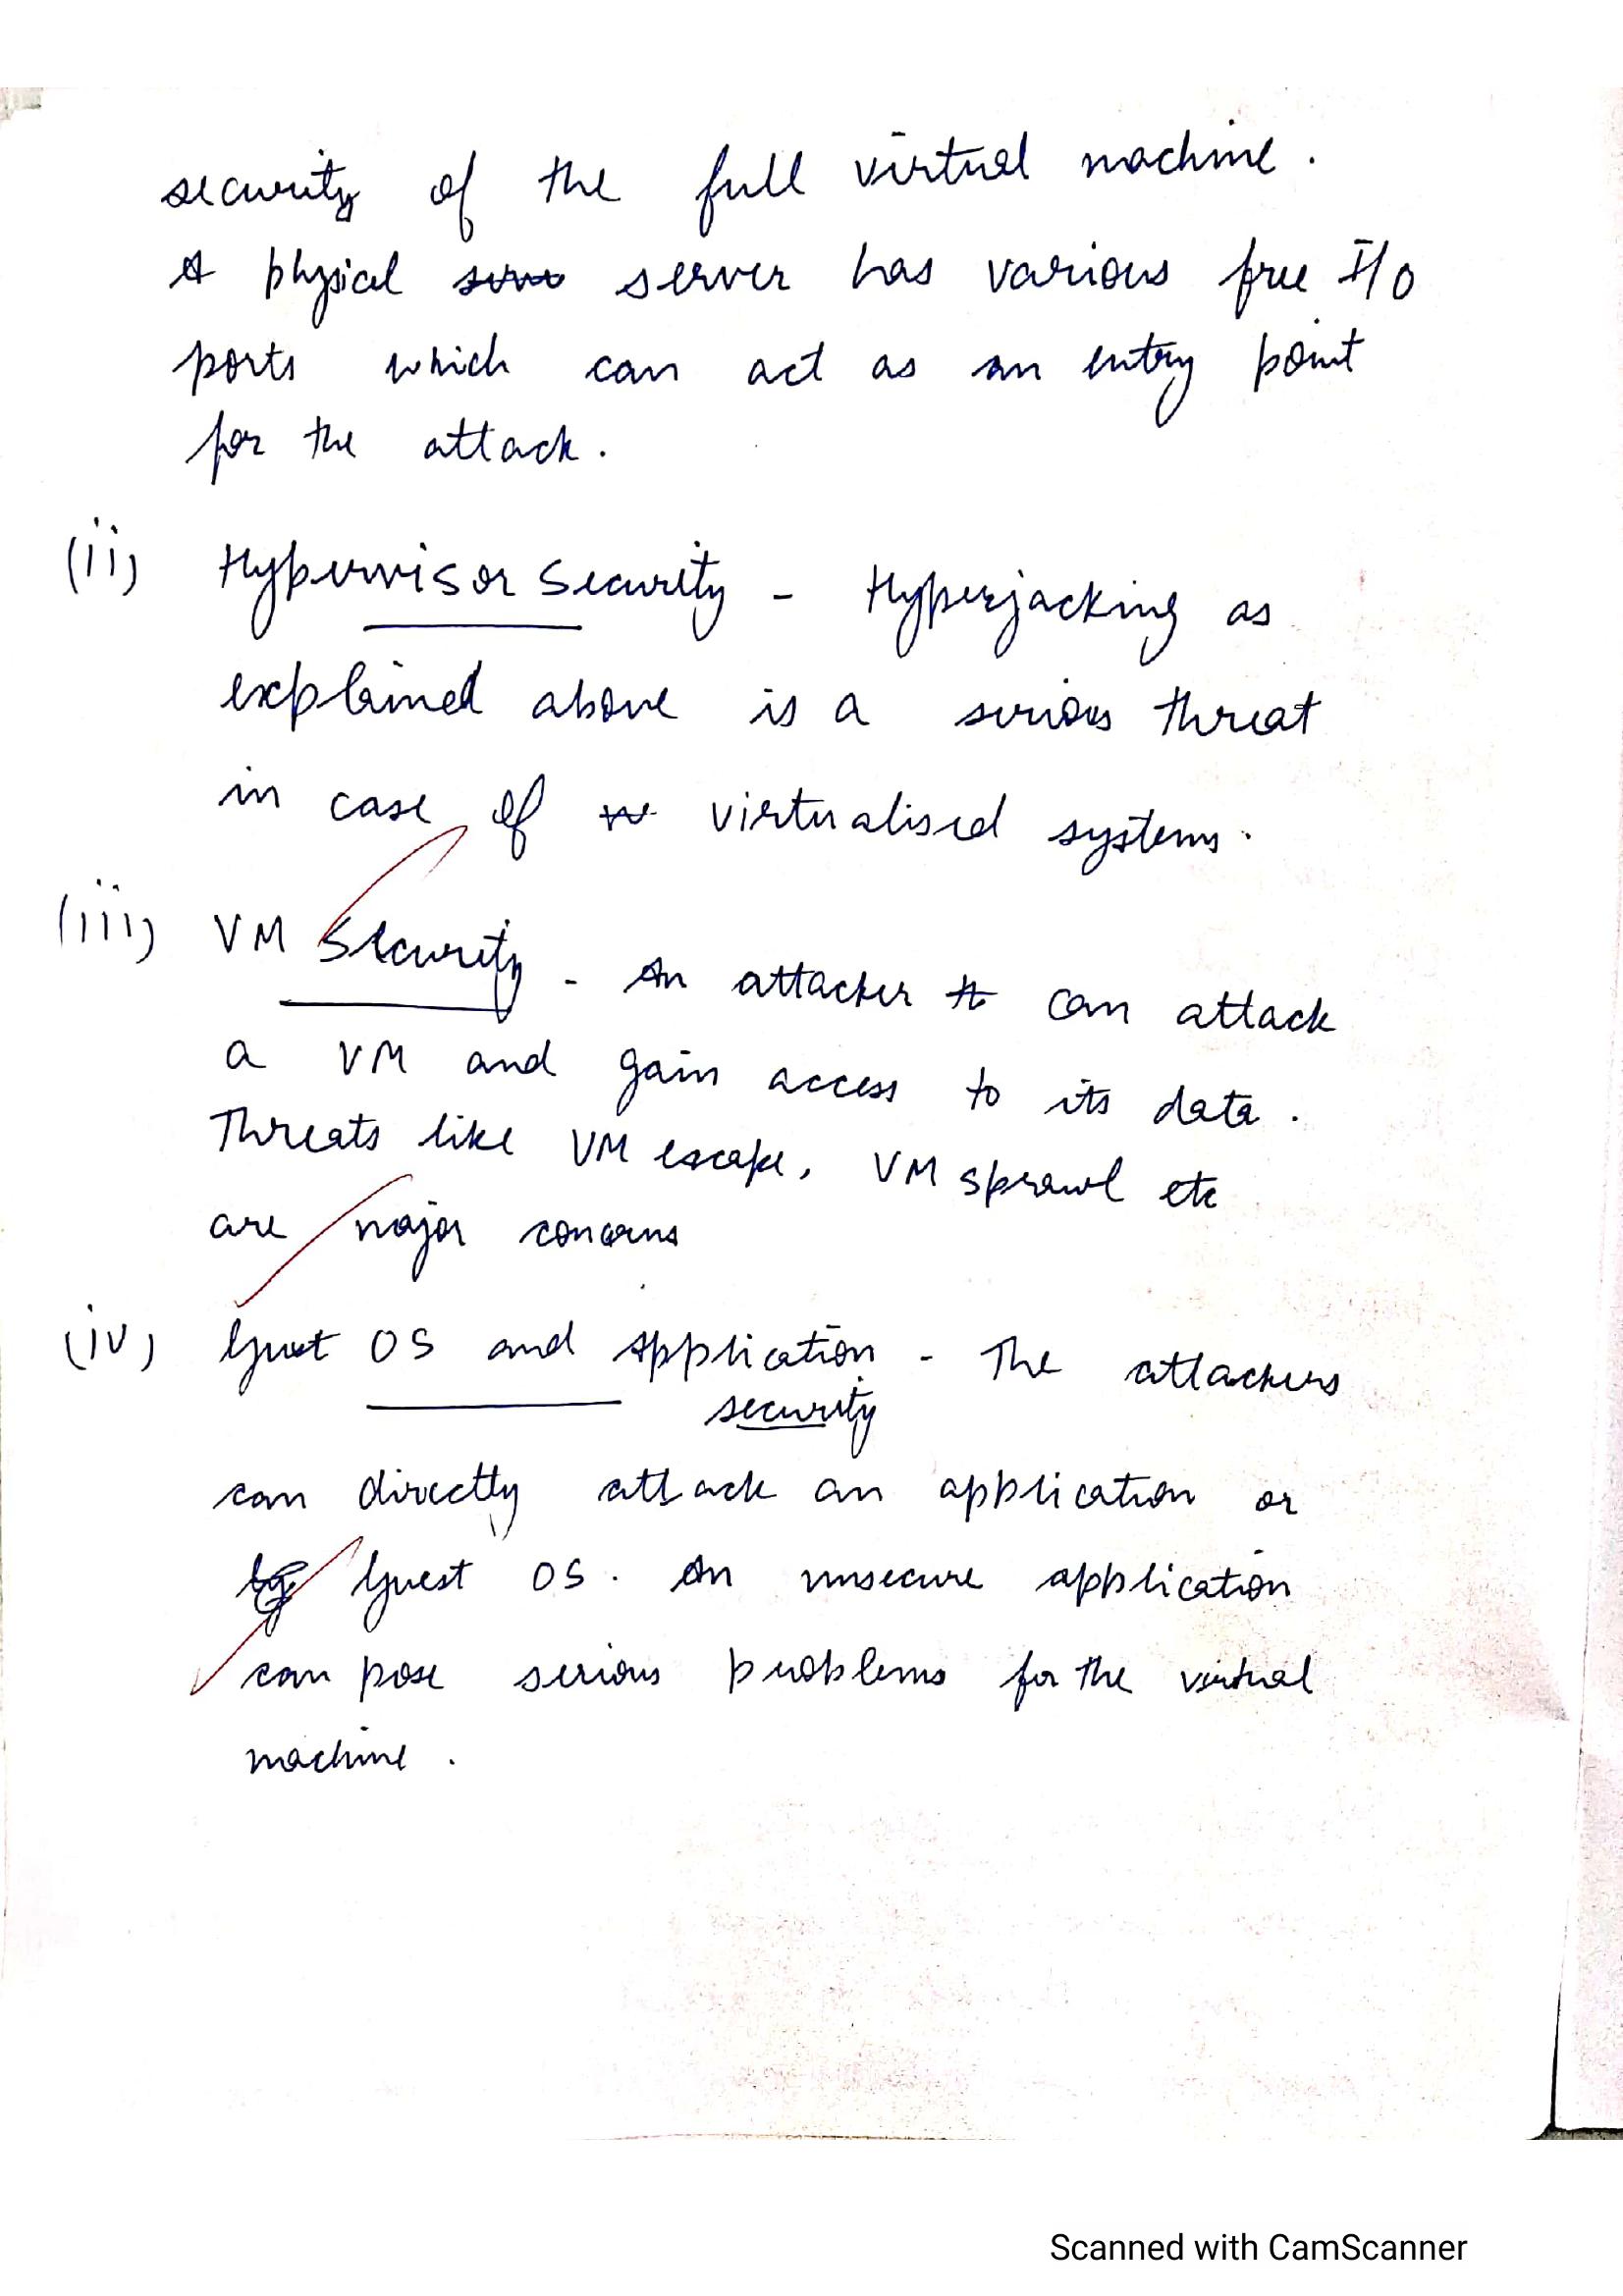 security of the full virtual machine.
A physical server has various free I/O
ports which can act as an entry point
for the attack.
(ii) Hypervisor Security - Hyperjacking as
explained above is a serious threat
in case of virtualised systems.
(iii) VM Security - An attacker can attack
a VM and gain access to its data.
Threats like VM escape, VM sprawl etc
are major concerns
(iv) Guest OS and Application - The attackers
security
can directly attack an application or
Guest OS. An unsecure application
can pose serious problems for the virtual
machine.
Scanned with CamScanner